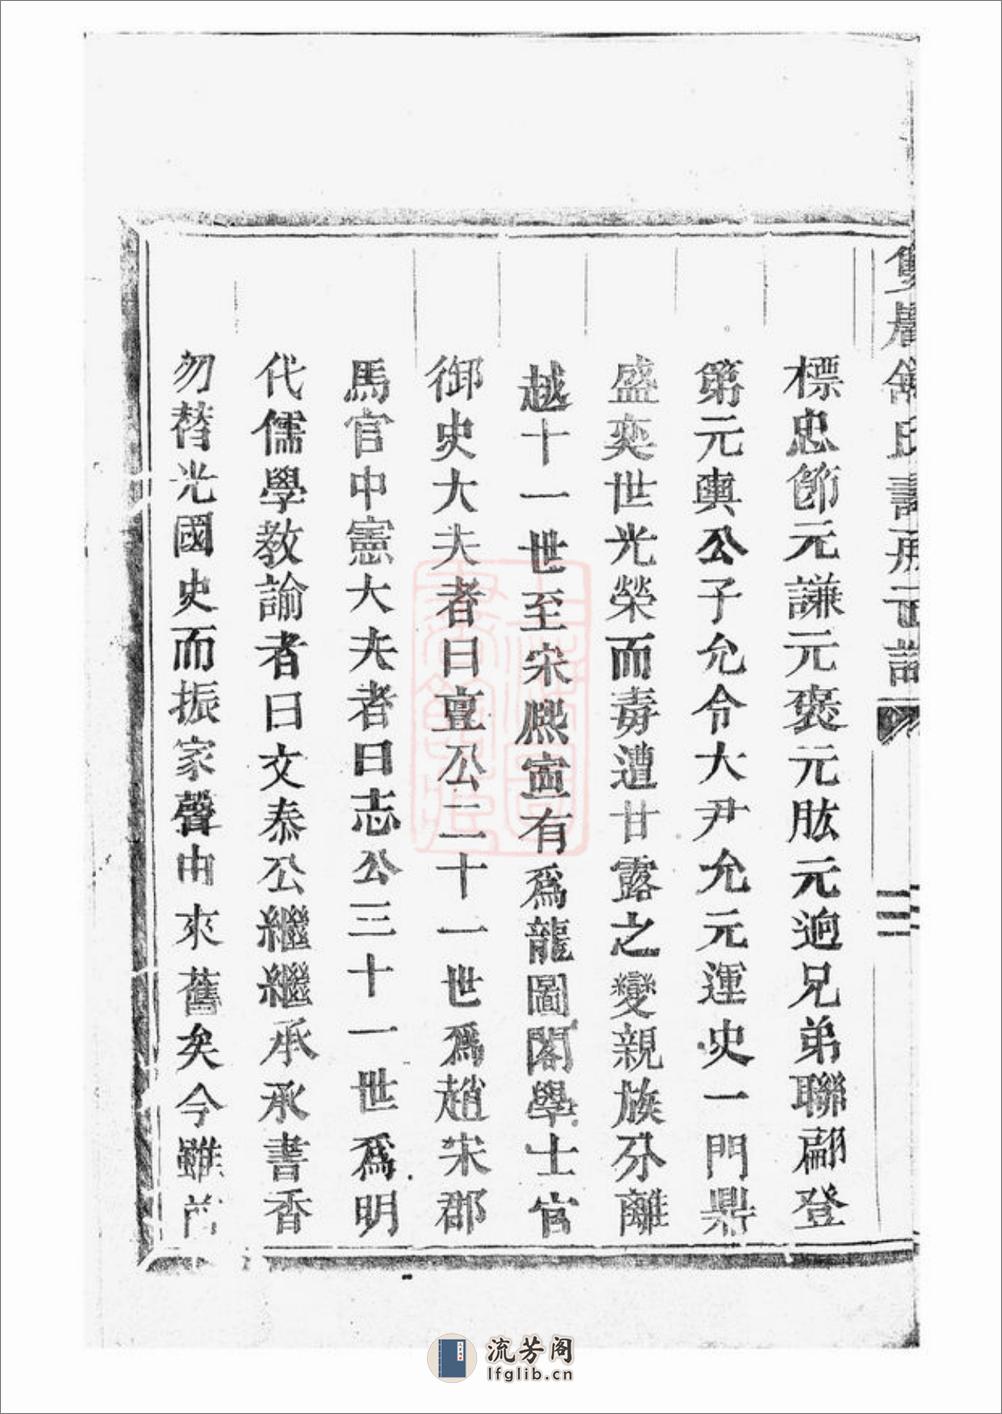 標忠節元謙元褒元肱元迥兄弟聯翩登
第元輿公子允令大尹允元運史一門鼎
盛奕世光榮而毐遭甘露之變親族分離
越十一世至宋熙寍有爲龍圖閣學士官
御史大夫者曰亶公二十一世爲趙宋郡
馬官中憲大夫者曰志公三十一世爲明
代儒學教諭者曰文泰公繼繼承承書香
勿替光國史而振家聲由來舊矣今雖
流芳阁
lfglib.cn